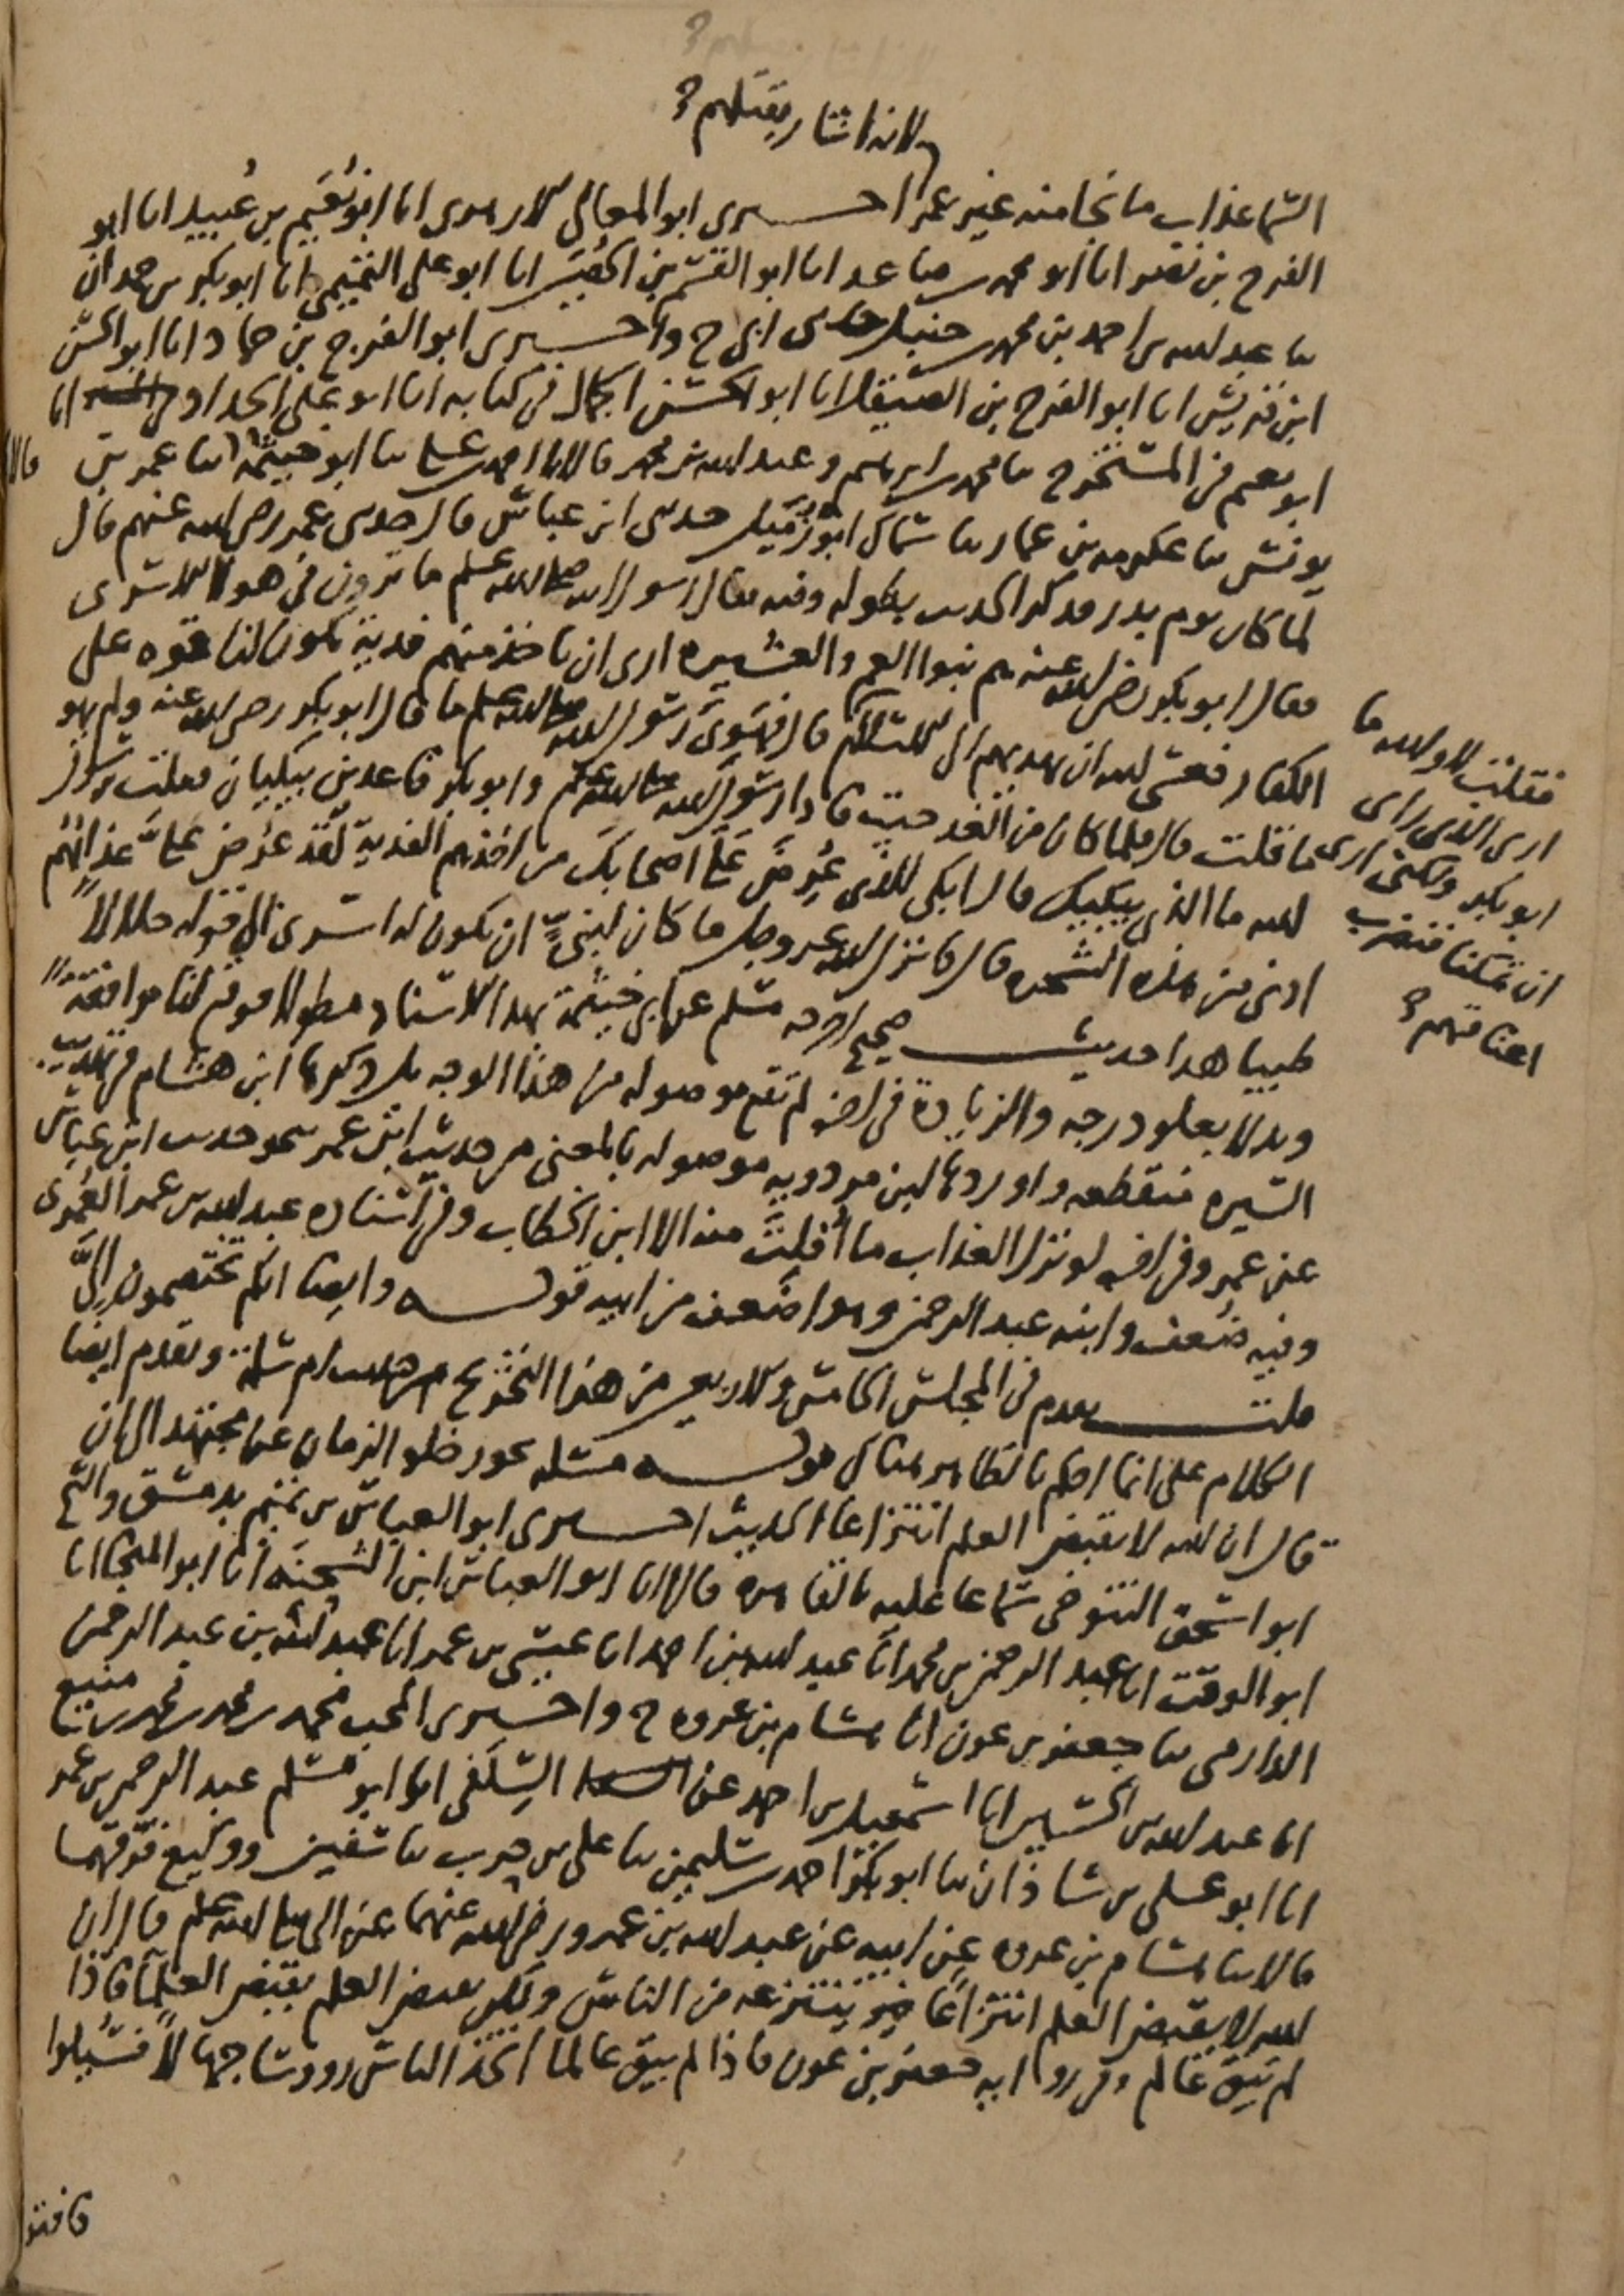 لانه اشار بقتلهم
السما عذاب ما نجا منه غير عمر اخبرني ابو المعالي الازهري انا ابو نعيم بن عبيد انا ابو
الفرج بن نصر انا ابو محمد بن صاعد انا ابو القسم بن الحصين انا ابو علي التميمي انا ابو بكر بن حمدان
سا عبد الله بن احمد بن محمد بن حنبل حدثني ابي ح واخبرني ابو الفرج بن حماد انا ابو الحسن
ابن قريش انا ابو الفرج بن الصيقل انا ابو الحسن الجمال في كتابه انا ابو علي الحداد انا
ابو نعيم في المستخرج سا محمد بن ابرهيم وعبد الله بن محمد قالا سا احمد بن علي سا ابو خيثمة سا عمر بن
قالا
يونس سا عكرمه بن عمار سا سماك ابو زميل حدثني ابن عباس قال حدثني عمر رضي الله عنهم قال
لما كان يوم بدر فذكر الحديث بطوله وفيه فقال رسول الله صلى الله عليه وسلم ما ترون في هولا الاسرى
فقال ابو بكر رضي الله عنه هم بنوا العم والعشيره ارى ان تاخذ منهم فدية تكون لنا قوه على
الكفار فعسى الله ان يهديهم الى الاسلام قال فهوى رسول الله صلى الله عليه وسلم ما قال ابو بكر رضي الله عنه ولم يهو
فقلت لا والله ما
ارى الذي راى
ابو بكر ولكني ارى
ان تمكنا فنضرب
اعناقهم
ما قلت قال فلما كان من الغد جيت فاذا رسول الله صلى الله عليه وسلم وابو بكر قاعدين يبكيان فقلت يرسول
الله ما الذي يبكيك قال ابكي للذي عرض علي اصحابك من اخذهم الفدية لقد عرض علي عذابهم
ادنى من هذه الشجره قال فانزل الله عز وجل ما كان لنبي ان يكون له اسرى الى قوله حلالا
طيبا هذا حديث صحيح اخرجه مسلم عن ابي خيثمة بهذا الاسناد مطولا فوقع لنا موافقة
وبدلا بعلو درجه والزيادة في اخره لم تقع موصوله من هذا الوجه بل ذكرها ابن هشام في تهذيب
السيره منقطعه واوردها ابن مردويه موصوله بالمعنى من حديث ابن عمر نحو حديث ابن عباس
عن عمر وفي اخره لو نزل العذاب ما افلت منه الا ابن الخطاب وفي اسناده عبد الله بن عمر العمري
وفيه ضعف وابنه عبد الرحمن وهو اضعف من ابيه قوله وايضا انكم تختصمون الي
قلت تقدم في المجلس الخامس والاربعين من هذا التخريج من حديث ام سلمة وتقدم ايضا
الكلام على انما احكم بالظاهر هناك قوله مسئله يجوز خلو الزمان عن مجتهد الى ان
قال ان الله لا يقبض العلم انتزاعا الحديث اخبرني ابو العباس بن تميم بدمشق والشيخ
ابو اسحق التنوخي سماعا عليه بالقاهره قالا انا ابو العباس ابن الشحنه انا ابو المنجا انا
ابو الوقت انا عبد الرحمن بن محمد انا عبد الله بن احمد انا عيسى بن عمر انا عبد الله بن عبد الرحمن
الدارمي سا جعفر بن عون انا هشام بن عروه ح واخبرني المحب محمد بن محمد بن محمد بن منيع
انا عبد الله بن الحسين انا اسمعيل بن احمد عن السلفي انا ابو مسلم عبد الرحمن بن عمر
انا ابو علي بن شاذان سا ابو بكر احمد بن سليمن سا علي بن حرب سا سفين ووكيع فرقهما
قالا سا هشام بن عروه عن ابيه عن عبد الله بن عمرو رضي الله عنهما عن النبي صلى الله عليه وسلم قال ان
الله لا يقبض العلم انتزاعا ينتزعه من الناس ولكن يقبض العلم بقبض العلما فاذا
لم يبق عالم وفي رواية جعفر بن عون فاذا لم يبق عالما اتخذ الناس رووسا جهالا فسيلوا
فافتوا